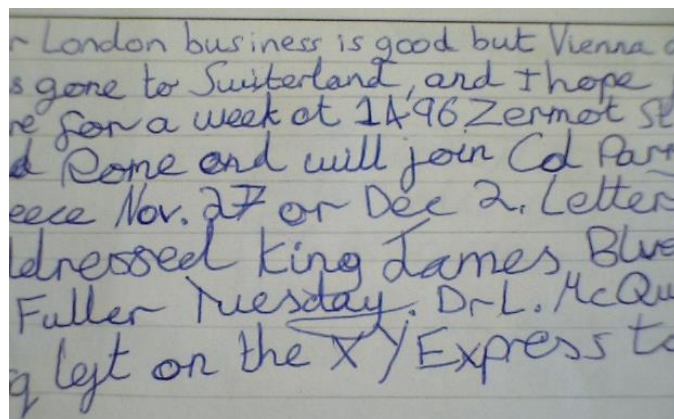 r London business is good but Vienna a
s gone to Switerland, and I hope
re for a week at 1496 Zermot St
d Rome and will join Col Parr
eece Nov. 27 or Dec 2. Letter
ldressed King James Blve
Fuller Tuesday. Dr L. McQu
g left on the XY Express to